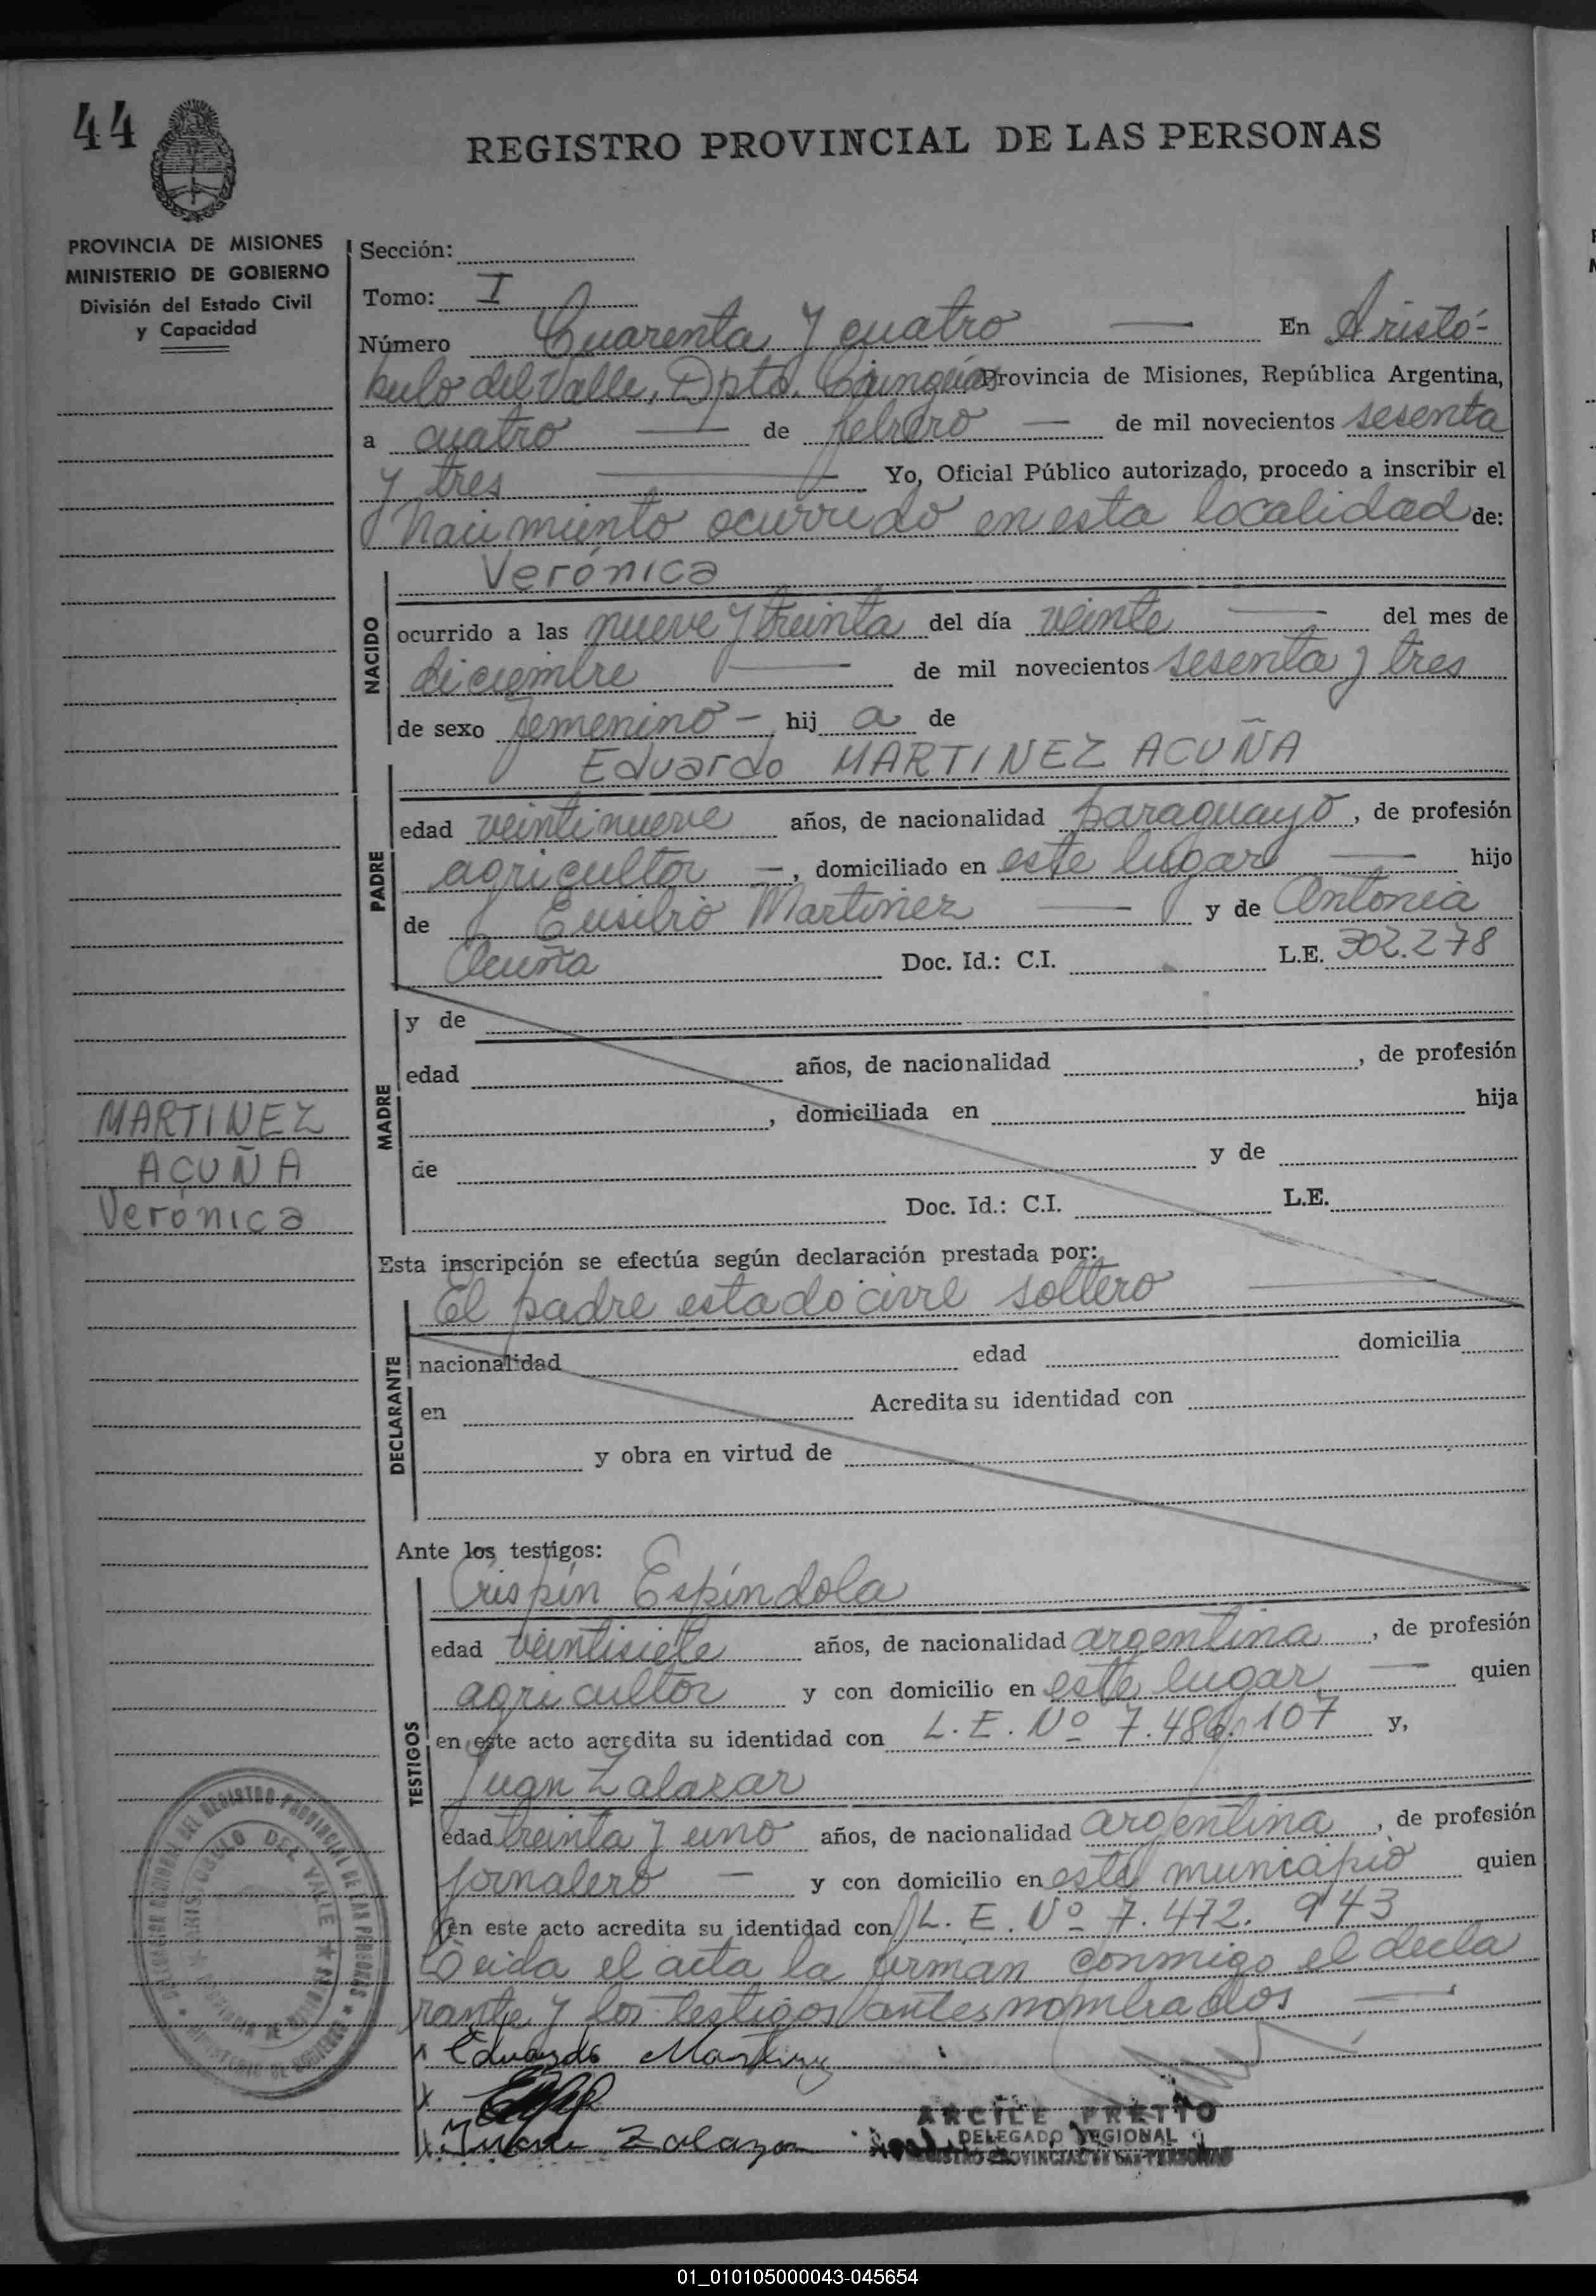 44
REGISTRO PROVINCIAL DE LAS PERSONAS
PROVINCIA DE MISIONES
MINISTERIO DE GOBIERNO
División del Estado Civil
y Capacidad
Sección:
Tomo: I
Número Cuarenta y cuatro — En Aristó-
bulo del Valle, Dpto. Cainguás Provincia de Misiones, República Argentina,
a cuatro — de febrero — de mil novecientos sesenta
y tres — Yo, Oficial Público autorizado, procedo a inscribir el
Nacimiento ocurrido en esta localidad de:
Verónica
NACIDO
ocurrido a las nueve y treinta del día veinte — del mes de
diciembre — de mil novecientos sesenta y tres
de sexo femenino — hij a de
Eduardo MARTINEZ ACUÑA
PADRE
edad veintinueve años, de nacionalidad paraguayo, de profesión
agricultor —, domiciliado en este lugar — hijo
de Eusebio Martinez — y de Antonia
Acuña Doc. Id.: C.I. L.E. 302.278
MADRE
y de
edad años, de nacionalidad , de profesión
, domiciliada en hija
de y de
Doc. Id.: C.I. L.E.
MARTINEZ
ACUÑA
Verónica
Esta inscripción se efectúa según declaración prestada por:
El padre estado civil soltero —
DECLARANTE
nacionalidad edad domicilia
en Acredita su identidad con
y obra en virtud de
Ante los testigos:
Crispín Espíndola
TESTIGOS
edad veintisiete años, de nacionalidad argentina, de profesión
agricultor y con domicilio en este lugar — quien
en este acto acredita su identidad con L. E. Nº 7.486.107 y,
Juan Zalazar
edad treinta y uno años, de nacionalidad argentina, de profesión
jornalero — y con domicilio en este municipio quien
en este acto acredita su identidad con L. E. Nº 7.472.943
Leida el acta la firman conmigo el decla
rante y los testigos antes nombrados —
x Eduardo Martinez
x
x Juan Zalazar
ARCILE PRETTO
DELEGADO REGIONAL
REGISTRO PROVINCIAL DE LAS PERSONAS
DELEGACION REGIONAL DEL REGISTRO PROVINCIAL DE LAS PERSONAS
ARISTOBULO DEL VALLE
PROVINCIA DE MISIONES
MINISTERIO DE GOBIERNO
01_010105000043-045654